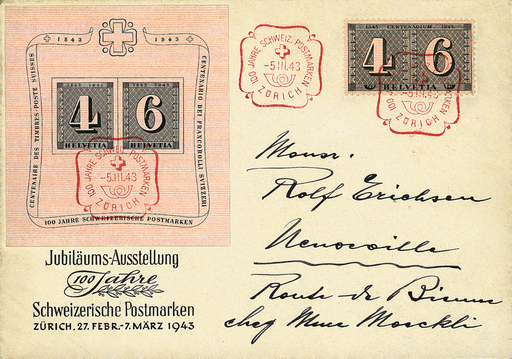 1843 1943
CENTENAIRE DES TIMBRES-POSTE SUISSES
CENTENARIO DEI FRANCOBOLLI SVIZZERI
100 JAHRE SCHWEIZERISCHE POSTMARKEN
4 6
HELVETIA HELVETIA
100 JAHRE SCHWEIZ. POSTMARKEN
-5.III.43
ZÜRICH
100 JAHRE SCHWEIZ. POSTMARKEN
-5.III.43
ZÜRICH
1843 CENTENARIUM 1943
4 6
HELVETIA
100 JAHRE SCHWEIZ. POSTMARKEN
-5.III.43
ZÜRICH
Jubiläums-Ausstellung
100 Jahre
Schweizerische Postmarken
ZÜRICH, 27. FEBR.-7. MÄRZ 1943
Monsr.
Rolf Erichsen
Neuveville
Route de Bienne
chez Mme Moeckli